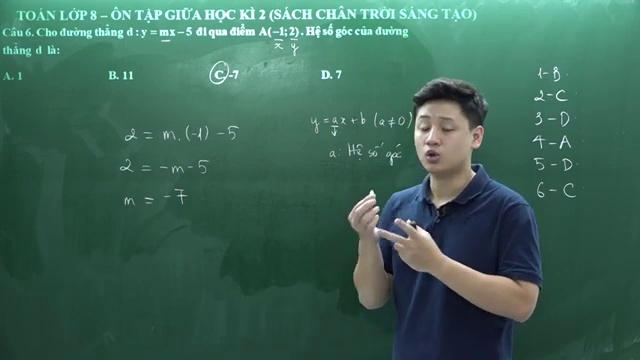 TOÁN LỚP 8 – ÔN TẬP GIỮA HỌC KÌ 2 (SÁCH CHÂN TRỜI SÁNG TẠO)
Câu 6. Cho đường thẳng d : y = mx – 5 đi qua điểm A(−1; 2). Hệ số góc của đường
x y
thẳng d là:
A. 1 B. 11 C. -7 D. 7
2 = m.(-1) - 5
2 = -m - 5
m = -7
y = ax + b (a ≠ 0)
a: Hệ số góc
1 - B
2 - C
3 - D
4 - A
5 - D
6 - C